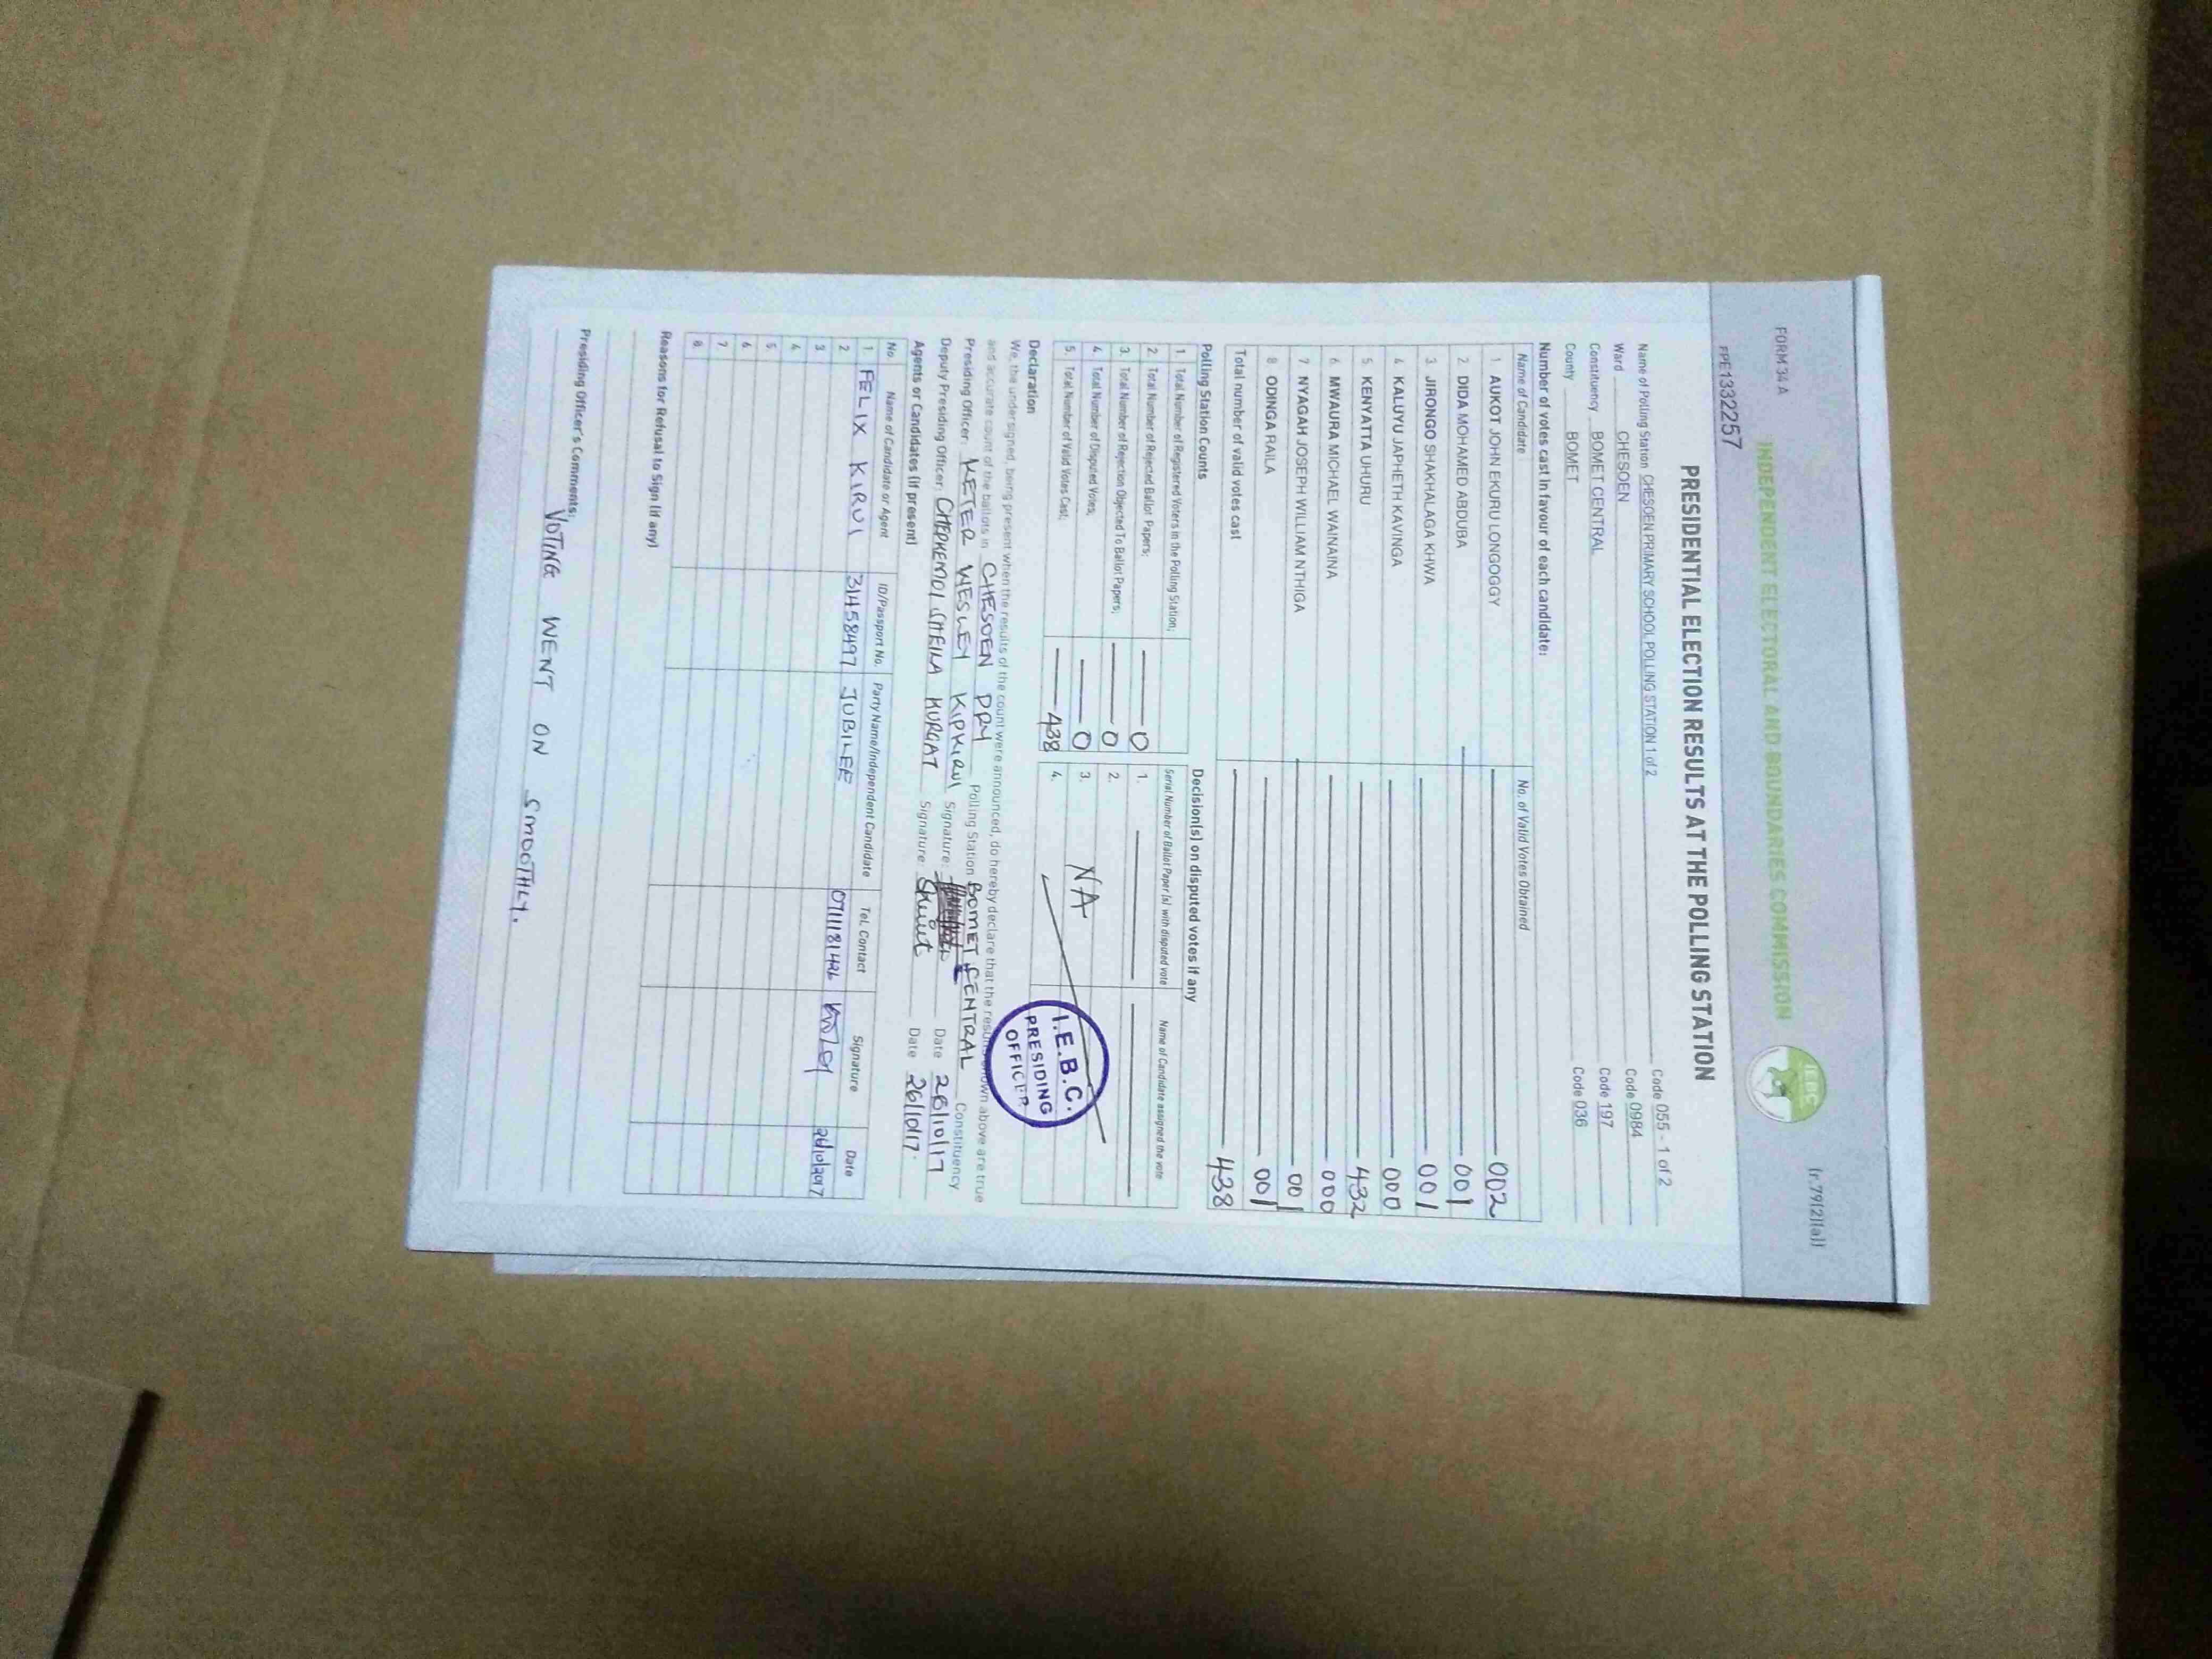 FORM 34 A
(r.79(2)(a))
INDEPENDENT ELECTORAL AND BOUNDARIES COMMISSION
IEBC
PRESIDENTIAL ELECTION RESULTS AT THE POLLING STATION
Name of Polling Station CHESOEN PRIMARY SCHOOL POLLING STATION 1 of 2 Code 055 - 1 of 2
Ward CHESOEN Code 0984
Constituency BOMET CENTRAL Code 197
County BOMET Code 036
Number of votes cast in favour of each candidate:
Name of Candidate No. of Valid Votes Obtained
1 AUKOT JOHN EKURU LONGOGGY 002
2 DIDA MOHAMED ABDUBA 001
3 JIRONGO SHAKHALAGA KHWA 001
4 KALUYU JAPHETH KAVINGA 000
5 KENYATTA UHURU 432
6 MWAURA MICHAEL WAINAINA 000
7 NYAGAH JOSEPH WILLIAM NTHIGA 001
8 ODINGA RAILA 001
Total number of valid votes cast 438
Polling Station Counts
1. Total Number of Registered Voters in the Polling Station;
2. Total Number of Rejected Ballot Papers; 0
3. Total Number of Rejection Objected To Ballot Papers; 0
4. Total Number of Disputed Votes; 0
5. Total Number of Valid Votes Cast; 438
Decision(s) on disputed votes if any
Serial Number of Ballot Paper (s) with disputed vote Name of Candidate assigned the vote
1.
2.
3. NA
4.
I.E.B.C.
PRESIDING
OFFICER
Declaration
We, the undersigned, being present when the results of the count were announced, do hereby declare that the results shown above are true
and accurate count of the ballots in CHESOEN PRY Polling Station BOMET CENTRAL Constituency
Presiding Officer: KETER WESLEY KIPKIRUI Signature: Date 26/10/17
Deputy Presiding Officer: CHEPKEMOI SHEILA KURGAT Signature: Date 26/10/17.
Agents or Candidates (if present)
No. Name of Candidate or Agent ID/Passport No. Party Name/Independent Candidate Tel. Contact Signature Date
1 FELIX KIRUI 31458497 JUBILEE 26/10/2017
2
3
4
5.
6.
7.
8.
Reasons for Refusal to Sign (if any)
Presiding Officer's Comments:
VOTING WENT ON SMOOTHLY.